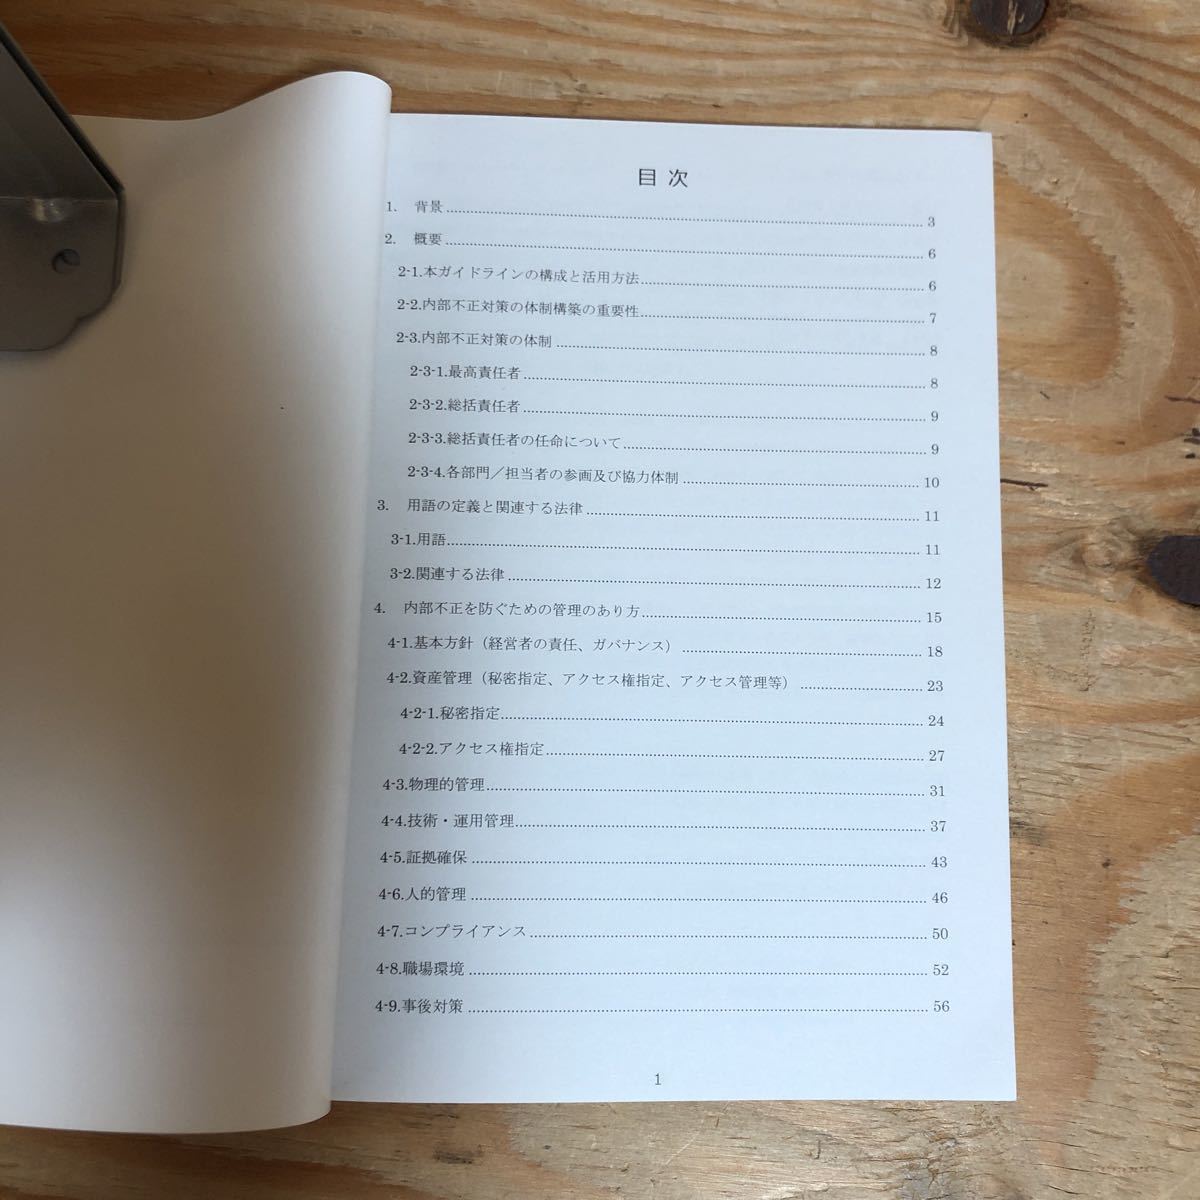 目 次
1. 背景 3
2. 概要 6
2-1.本ガイドラインの構成と活用方法 6
2-2.内部不正対策の体制構築の重要性 7
2-3.内部不正対策の体制 8
2-3-1.最高責任者 8
2-3-2.総括責任者 9
2-3-3.総括責任者の任命について 9
2-3-4.各部門／担当者の参画及び協力体制 10
3. 用語の定義と関連する法律 11
3-1.用語 11
3-2.関連する法律 12
4. 内部不正を防ぐための管理のあり方 15
4-1.基本方針（経営者の責任、ガバナンス） 18
4-2.資産管理（秘密指定、アクセス権指定、アクセス管理等） 23
4-2-1.秘密指定 24
4-2-2.アクセス権指定 27
4-3.物理的管理 31
4-4.技術・運用管理 37
4-5.証拠確保 43
4-6.人的管理 46
4-7.コンプライアンス 50
4-8.職場環境 52
4-9.事後対策 56
1